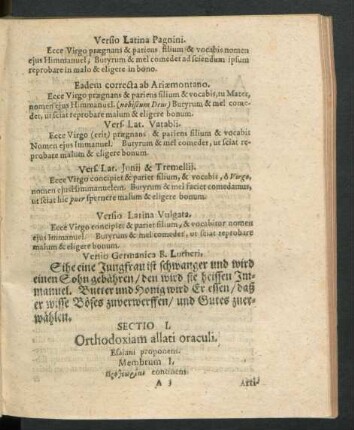 Versio Latina Pagnini.
Ecce Virgo prægnans & pariens filium & vocabis nomen
ejus Himmanuel, Butyrum & mel comedet ad sciendum ipsum
reprobare in malo & eligere in bono.
Eadem correcta ab Ariæmontano.
Ecce Virgo prægnans & pariens filium & vocabis, tu Mater,
nomen ejus Himmanuel (nobiscum Deus) Butyrum & mel come-
det, ut sciat reprobare malum & eligere bonum.
Vers. Lat. Vatabli.
Ecce Virgo (erit) prægnans & pariens filium & vocabis
Nomen ejus Immanuel. Butyrum & mel comedet, ut sciat re-
probare malum & eligere bonum.
Vers. Lat. Junij & Tremellij.
Ecce Virgo concipiet & pariet filium, & vocabis, ô Virgo,
nomen ejus Himmanuelem. Butyrum & mel faciet comedamus,
ut sciat hic puer spernere malum & eligere bonum.
Versio Latina Vulgata.
Ecce Virgo concipiet & pariet filium, & vocabitur nomen
ejus Immanuel. Butyrum & mel comedet, ut sciat reprobare
malum & eligere bonum.
Versio Germanica B. Lutheri.
Sihe eine Jungfrau ist schwanger und wird
einen Sohn gebähren / den wird sie heissen Im-
manuel. Butter und Honig wird Er essen / daß
er wisse Böses zuverwerffen / und Gutes zuer-
wählen.
SECTIO I.
Orthodoxiam allati oraculi,
Esaiani proponens.
Membrum I.
continens.
A 3 Arti-